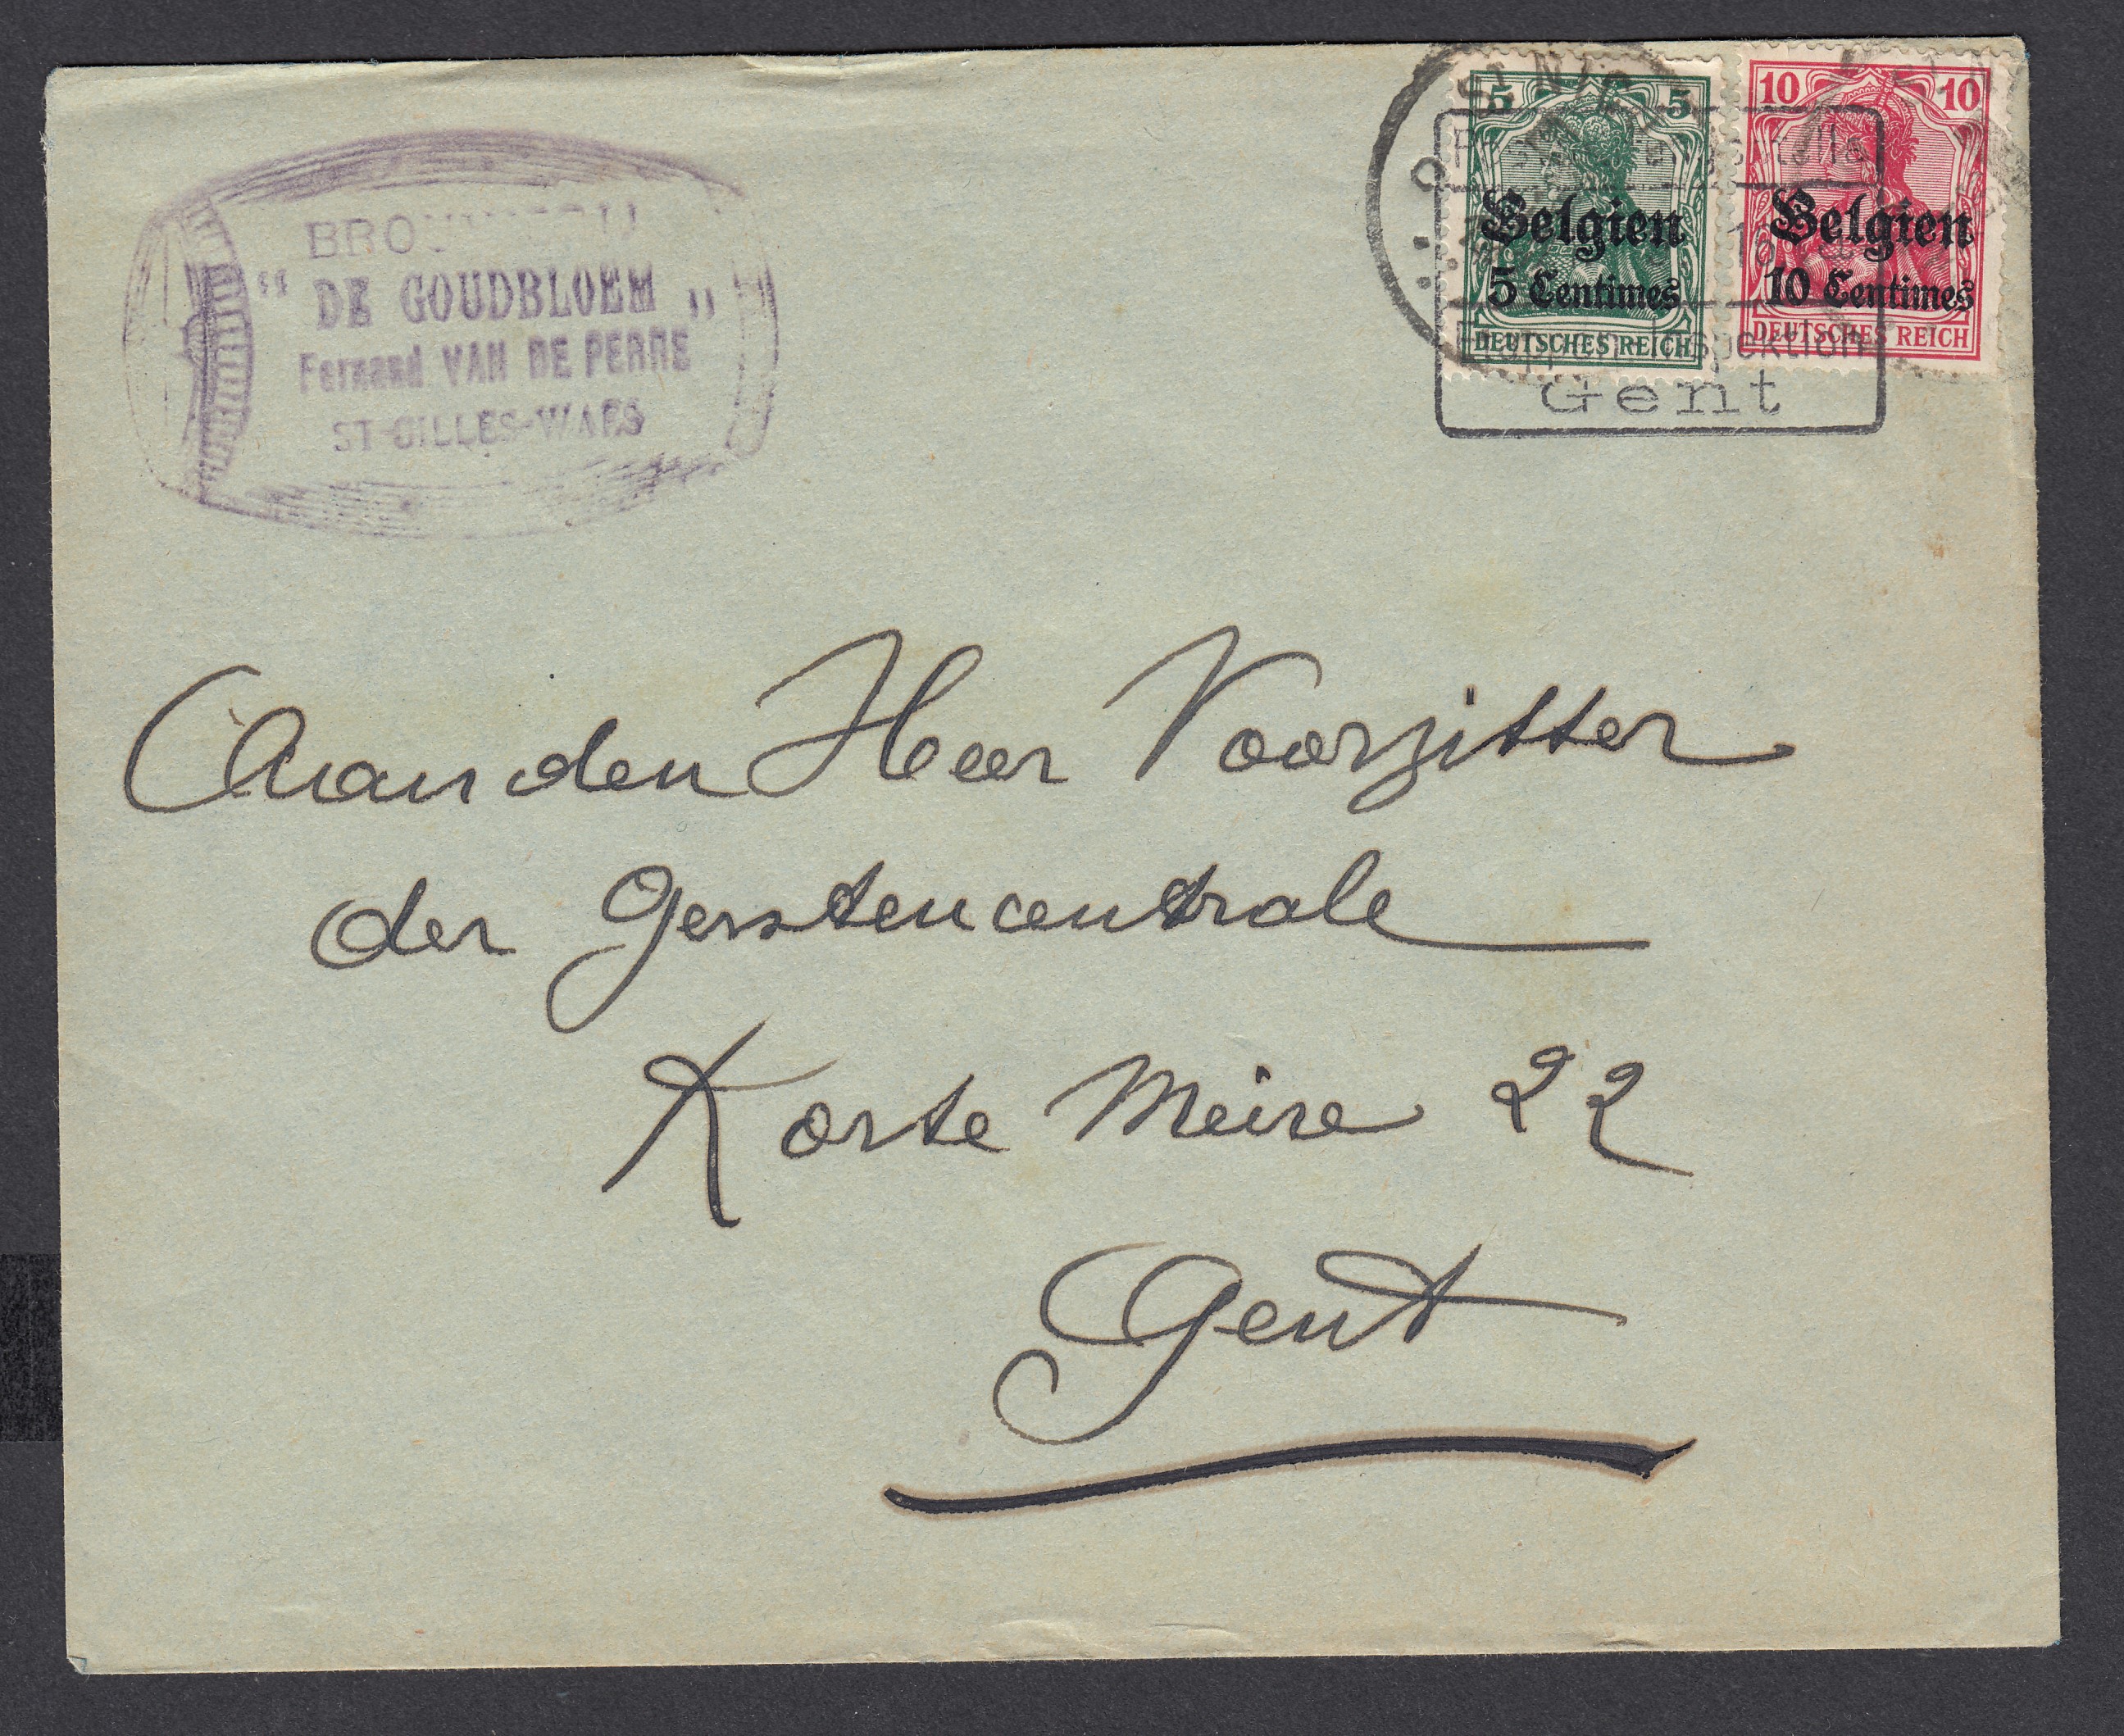 BROUWERIJ
“ DE GOUDBLOEM „
Fernand VAN DE PERRE
ST-GILLES-WAES
5 5
Belgien
5 Centimes
DEUTSCHES REICH
10 10
Belgien
10 Centimes
DEUTSCHES REICH
Gent
Aan den Heer Voorzitter
der Gerstencentrale
Korte Meire 22
Gent